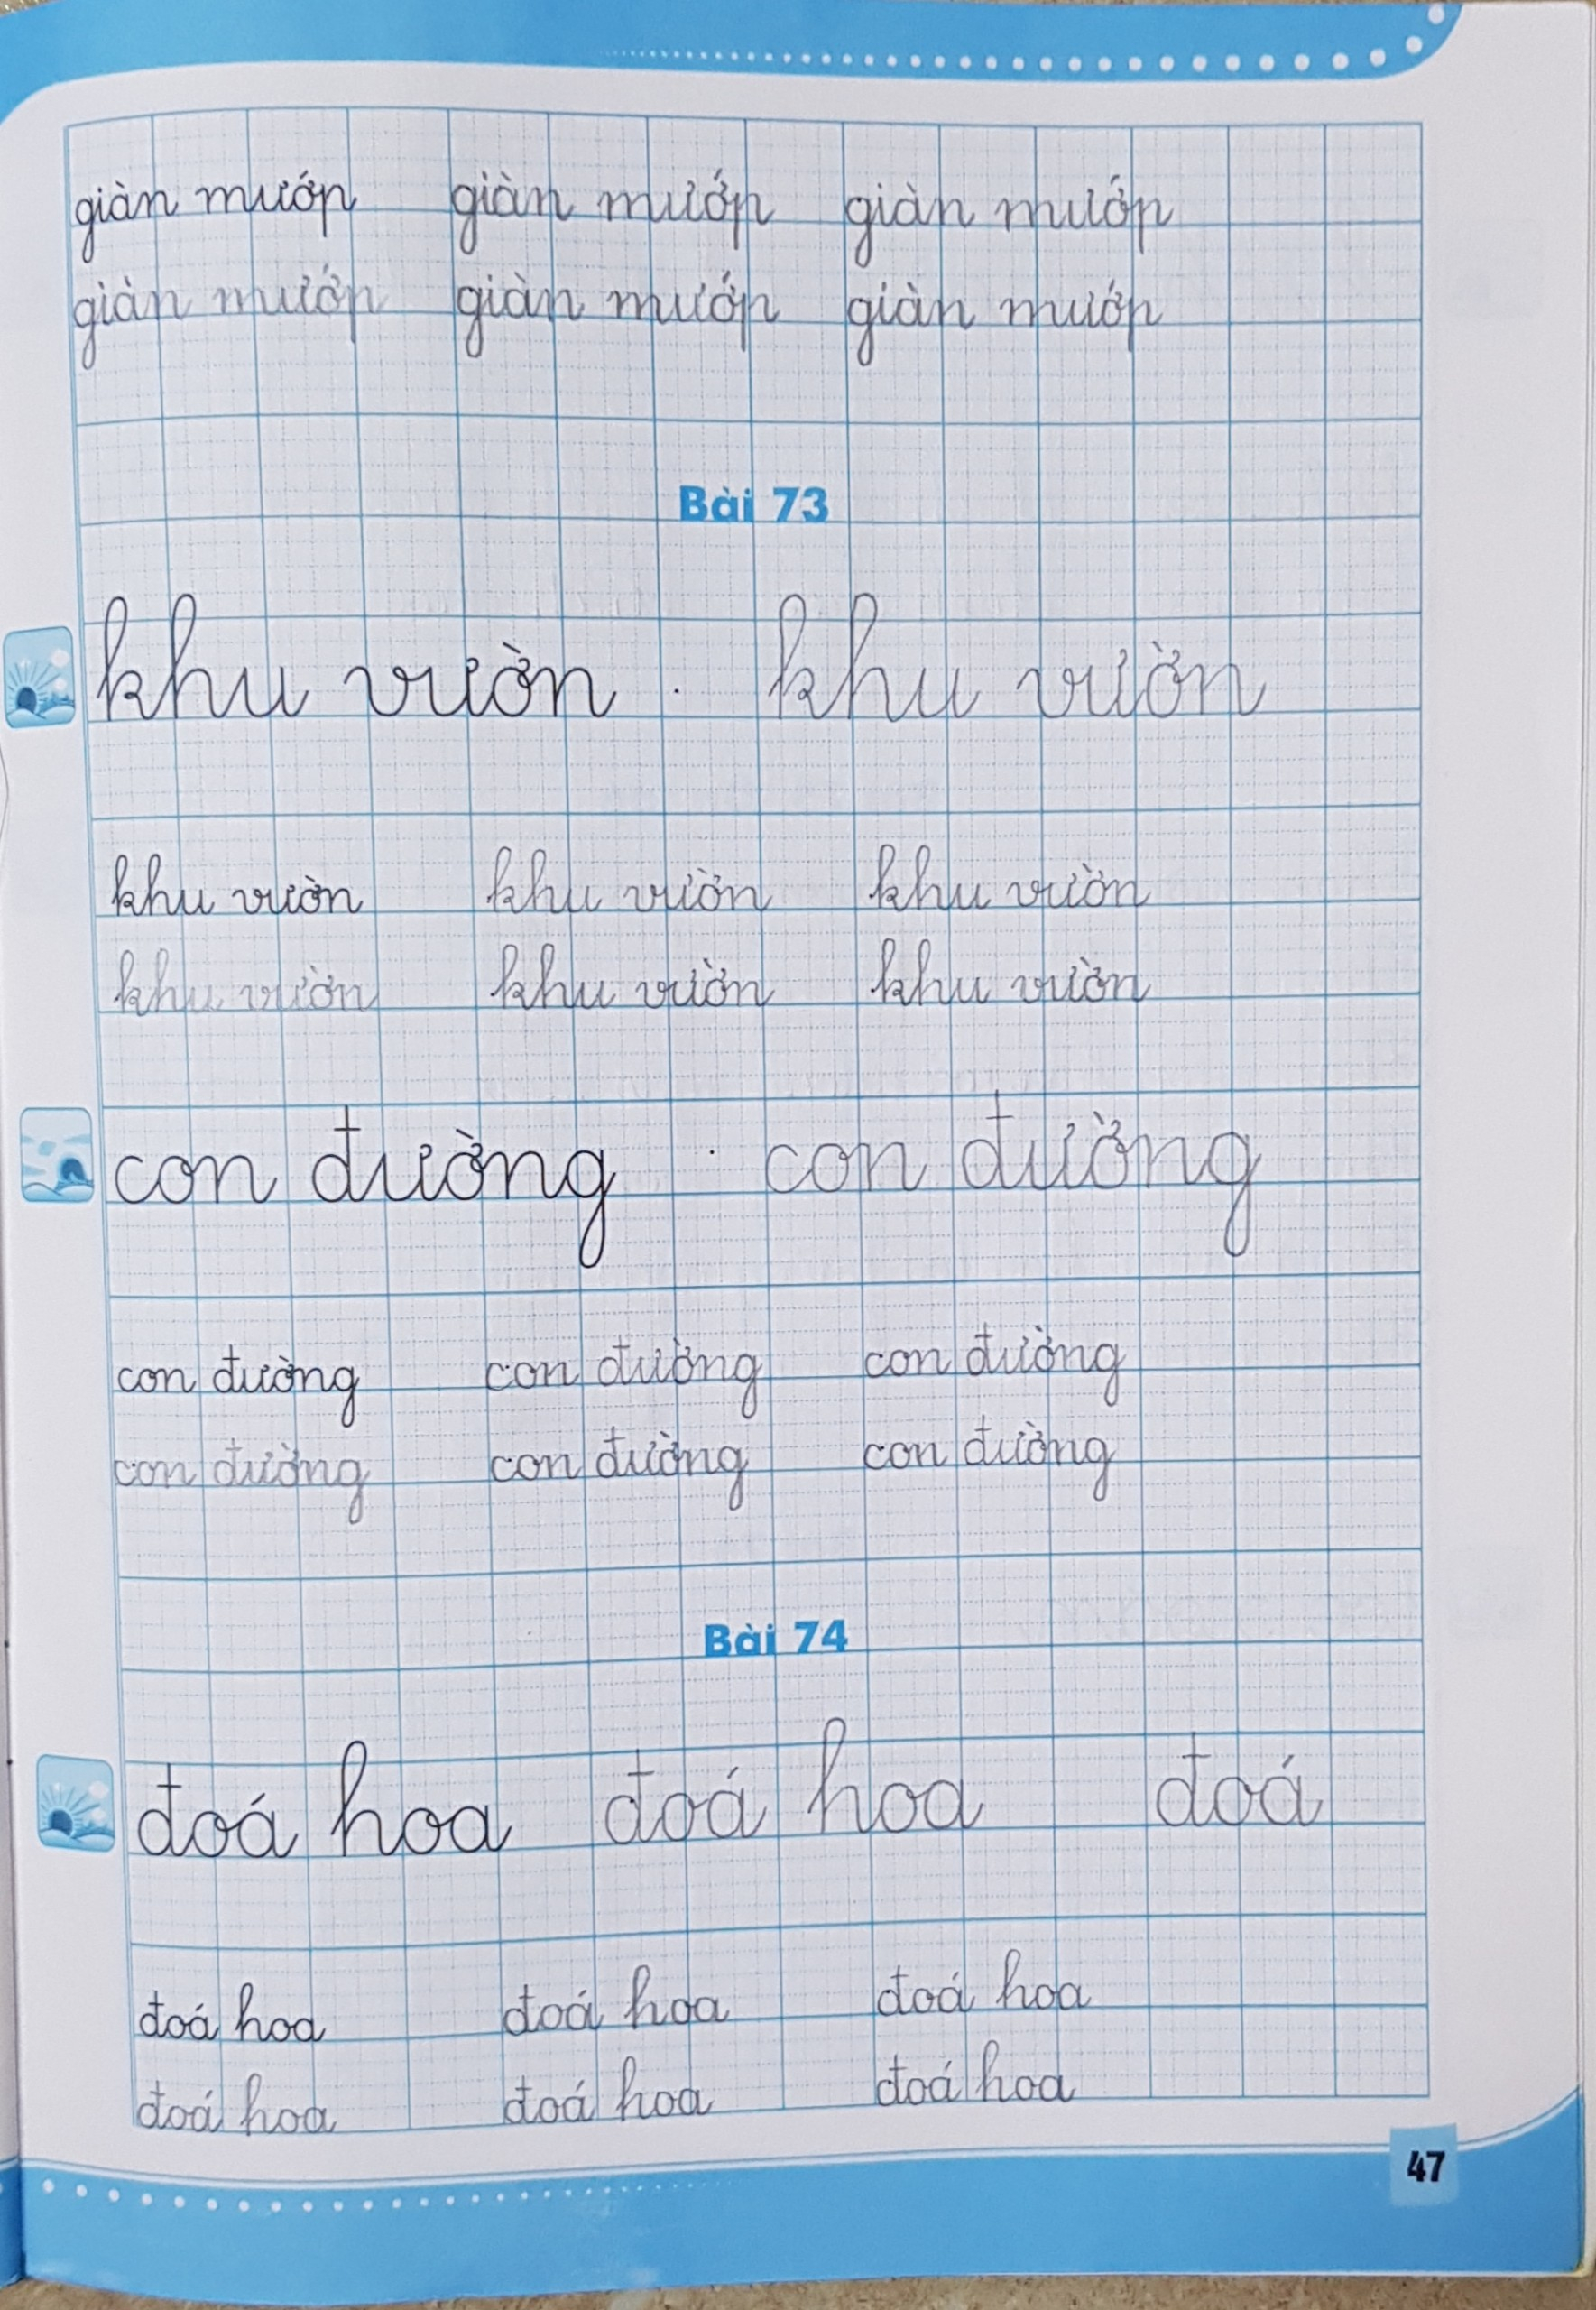 giàn mướp giàn mướp giàn mướp
giàn mướp giàn mướp giàn mướp
Bài 73
khu vườn . khu vườn
khu vườn khu vườn khu vườn
khu vườn khu vườn khu vườn
con đường . con đường
con đường con đường con đường
con đường con đường con đường
Bài 74
đoá hoa đoá hoa đoá
đoá hoa đoá hoa đoá hoa
đoá hoa đoá hoa đoá hoa
47